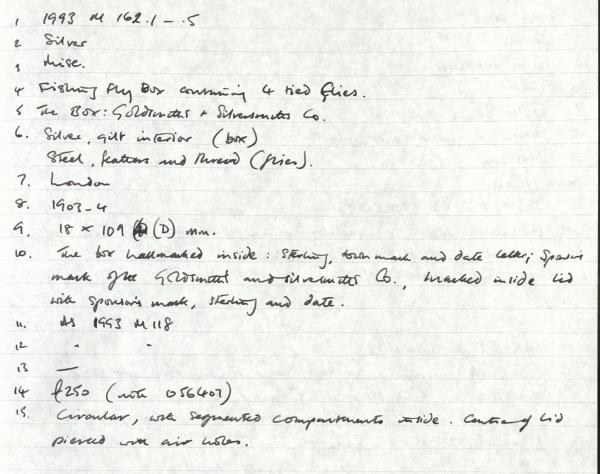 1 1993 M 162.1 – .5
2 Silver
3 Misc.
4 Fishing Fly Box containing 4 tied flies.
5 The Box: Goldsmiths + Silversmiths Co.
6. Silver, gilt interior (box)
Steel, feathers and thread (flies).
7. London
8. 1903-4
9. 18 × 109 (D) mm.
10. The box hallmarked inside: sterling, town mark and date letter; sponsor's
mark of the Goldsmiths and Silversmiths Co., marked inside lid
with sponsor's mark, sterling and date.
11. As 1993 M 118
12 " "
13 —
14 £250 (note 056407)
15. Circular, with segmented compartments inside. Centre of lid
pierced with air holes.